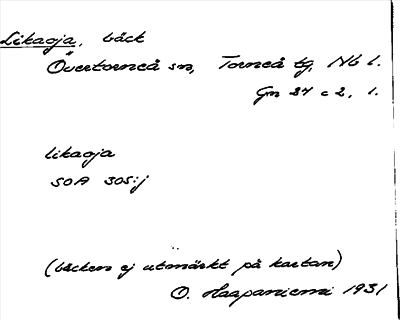 Likaoja, bäck
Övertorneå sn, Torneå tg, Nb l.
Gn 27 c 2, 1.
likaoja
SOA 305:j
(bäcken ej utmärkt på kartan)
O. Haapaniemi 1931